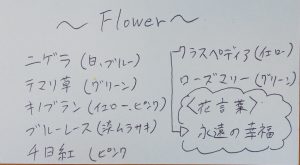 ～Flower～
ニゲラ (白,ブルー)
テマリ草 (グリーン)
キノブラン (イエロー、ピンク)
ブルーレース (淡ムラサキ)
千日紅 (ピンク
クラスペディア (イエロー)
ローズマリー (グリーン)
〈花言葉〉
永遠の幸福